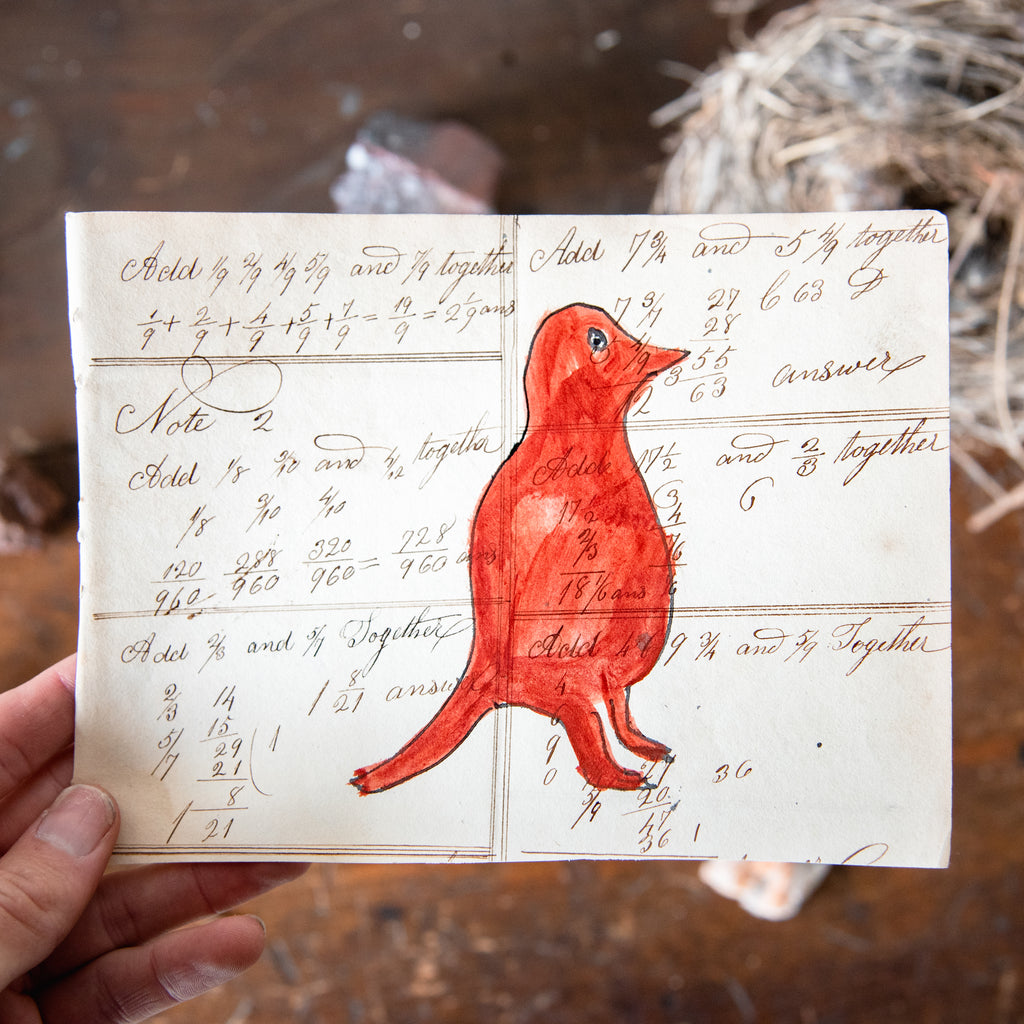 Add 1/9 2/9 4/9 5/9 and 7/9 together
1/9 + 2/9 + 4/9 + 5/9 + 7/9 = 19/9 = 2 1/9 ans
Note 2
Add 1/8 3/10 and 4/12 together
1/8 3/10 4/10
120/960 288/960 320/960 = 728/960 ans
Add 2/3 and 5/7 Together
2/3 14
5/7 15
29 ( 1
21
8
1 21
1 8/21 answer
Add 7 3/4 and 5 4/9 together
7 3/7 27 6 63
5 4/9 28
3 55
12 63 answer
Add 17 1/2 and 2/3 together
17 1/2 3 6
2/3 4
18 1/6 ans
Add 4 9 3/4 and 5/9 Together
4
6
9 27 36
0 20
5/9 47
36 1